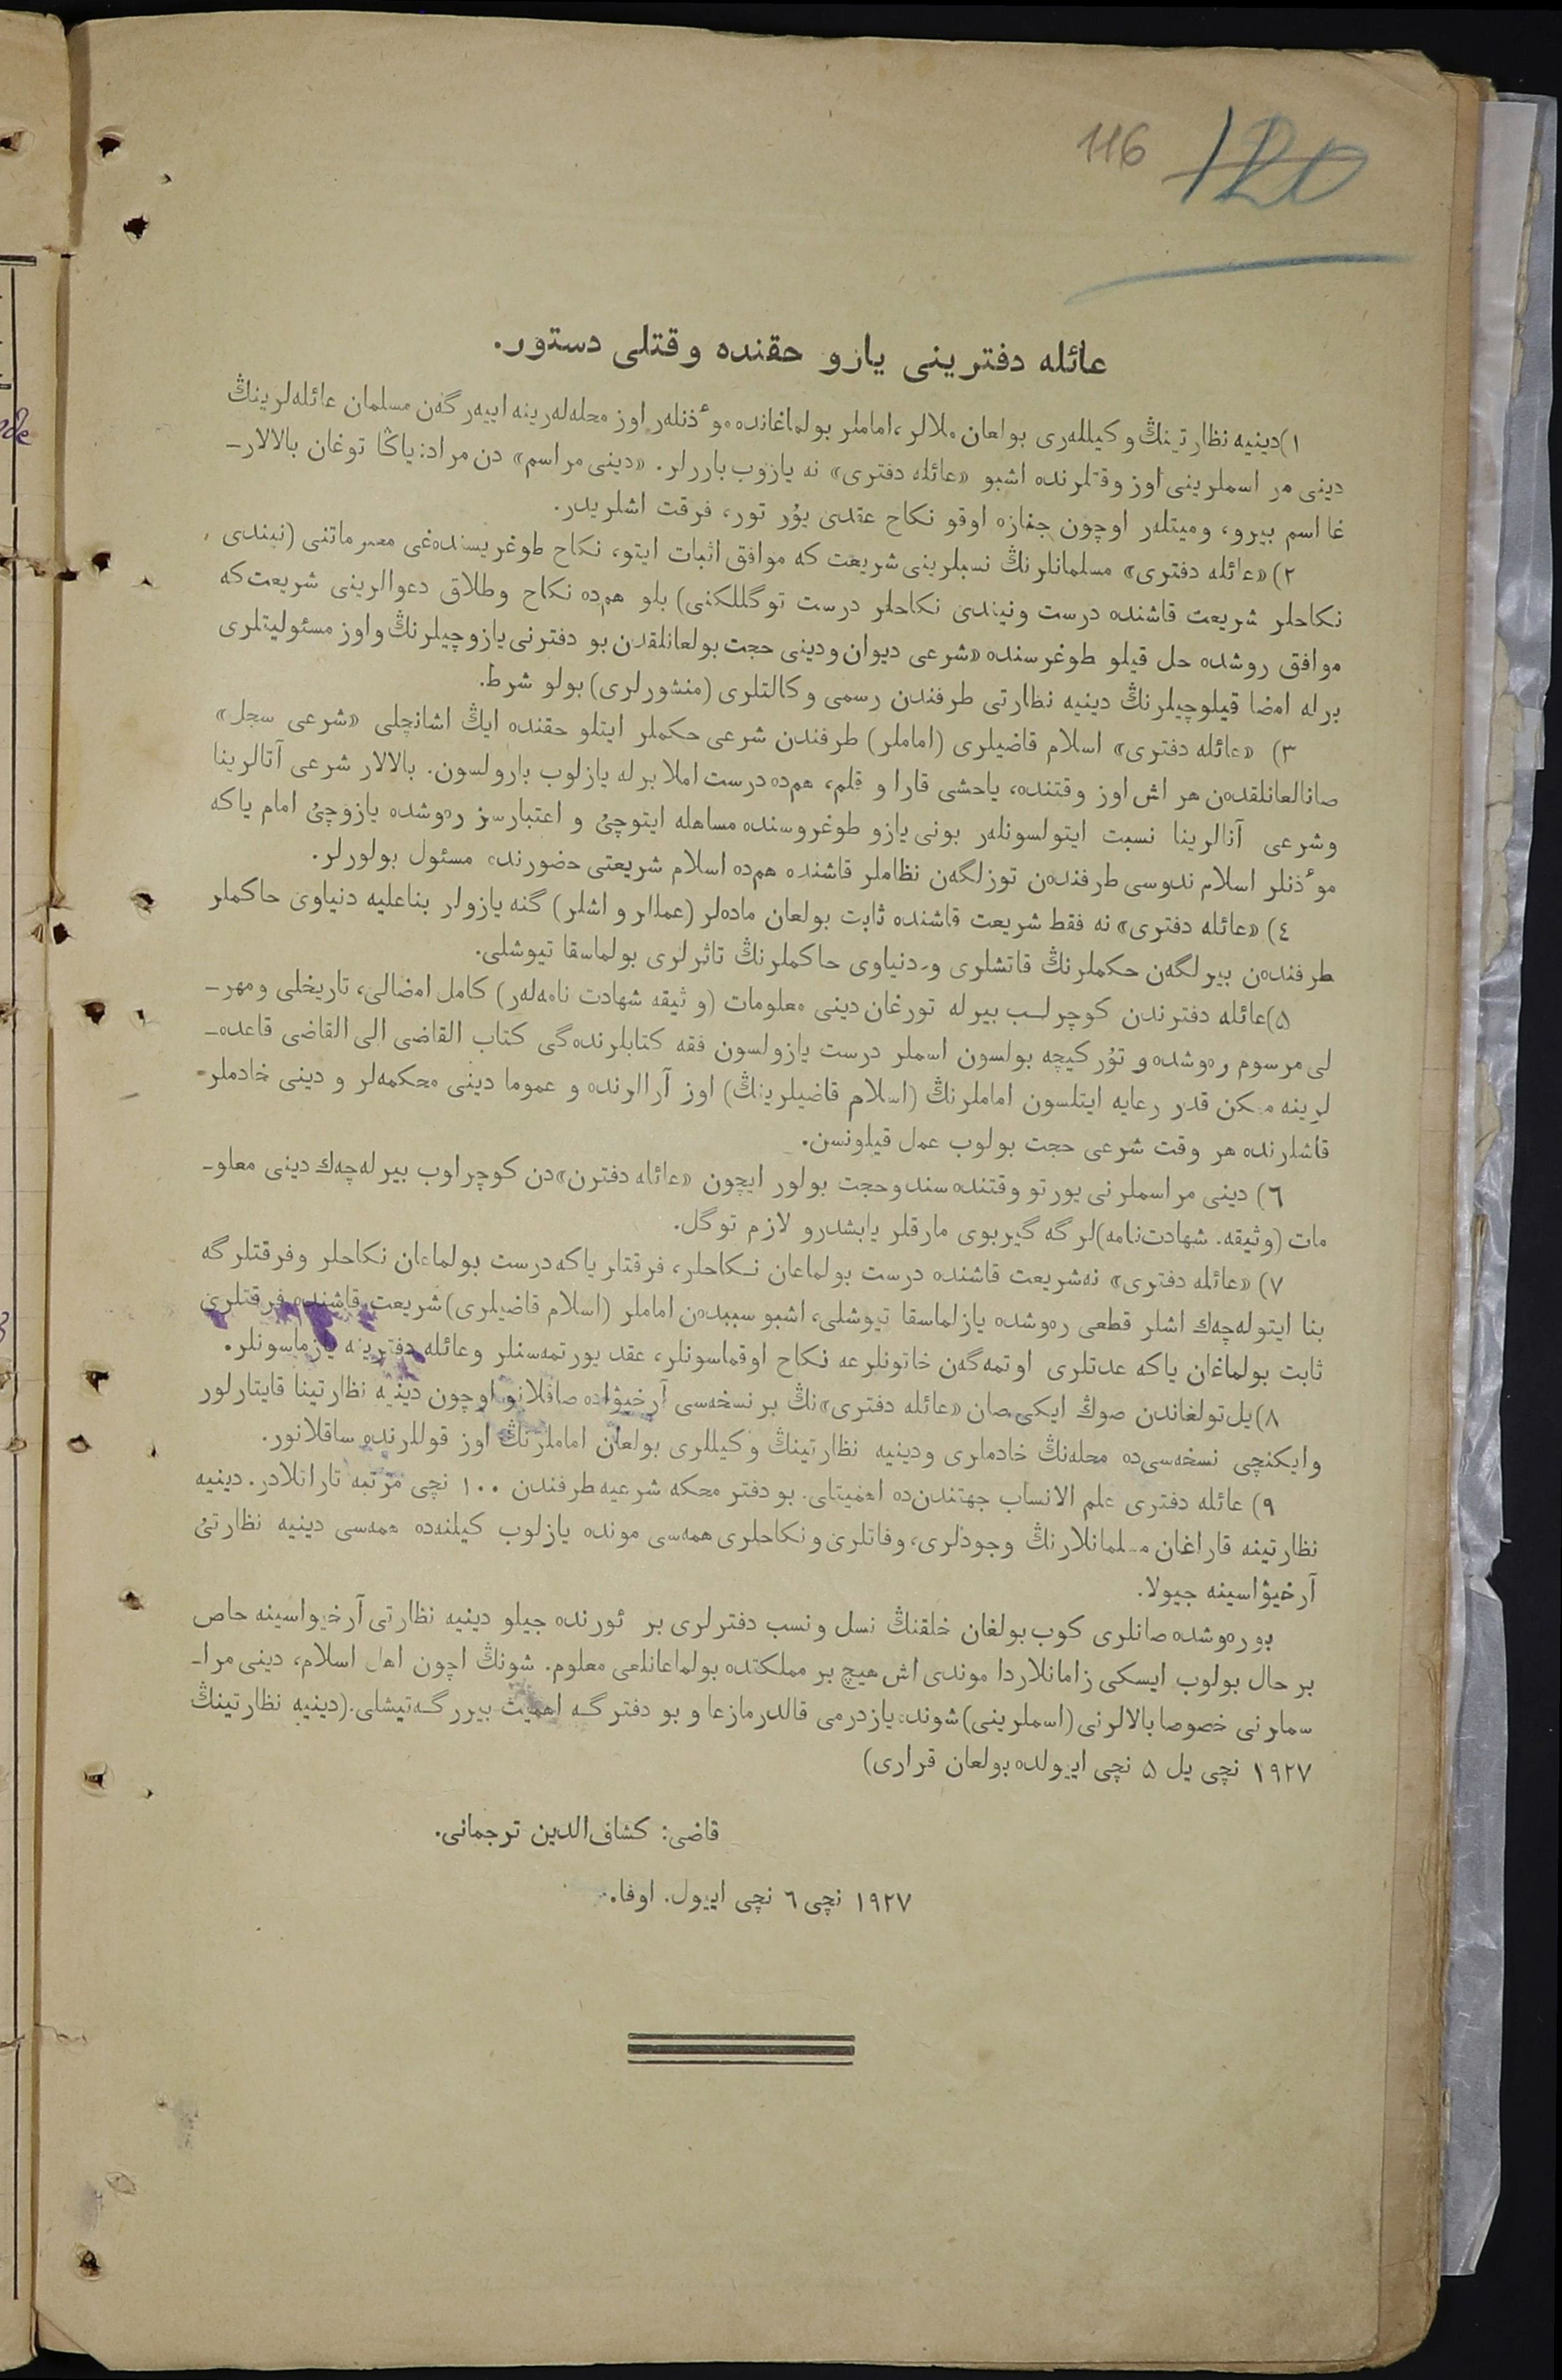 116 120
عائله دفترينی يازو حقنده وقتلی دستور.
١)دينيه نظارتينڭ وكيللەری بولعان ملالر، اماملر بولماغانده موٴذنلەر اوز محلەلەرينه اييەرگەن مسلمان عائلەلرينڭ
دينی مر اسملرينی اوز وقتلرنده اشبو «عائله دفتری» نه يازوب باررلر. «دينی مراسم» دن مراد: ياڭا توغان بالالارـ
غا اسم بيرو، وميتلەر اوچون جنازه اوقو نكاح عقدی يۇر تور، فرقت اشلريدر.
٢) «عائله دفتری» مسلمانلرنڭ نسبلرينی شريعت كه موافق اثبات ايتو، نكاح طوغريسندەغی محرماتنی (نيندی
نكاحلر شريعت قاشنده درست ونيندی نكاحلر درست توگللكنی) بلو هەمده نكاح وطلاق دعوالرينی شريعت كه
موافق روشده حل قيلو طوغرسنده «شرعی ديوان ودينی حجت بولعانلقدن بو دفترنی يازوچيلرنڭ واوز مسئوليتلری
برله امضا قيلوچيلرنڭ دينيه نظارتی طرفندن رسمی وكالتلری (منشورلری) بولو شرط.
٣) «عائله دفتری» اسلام قاضيلری (اماملر) طرفندن شرعی حكملر ايتلو حقنده ايڭ اشانچلی «شرعی سجل»
صانالعانلقدەن هر اش اوز وقتنده، ياحشی قارا و قلم، هەمده درست املا برله يازلوب بارولسون. بالالار شرعی آتالرينا
وشرعی آنالرينا نسبت ايتولسونلەر بونی يازو طوغروسنده مساهله ايتوچیٔ و اعتبارسز رەوشده يازوچیٔ امام ياكه
موٴذنلر اسلام ندوسی طرفندەن توزلگەن نظاملر قاشنده هەمده اسلام شريعتی حضورنده مسئول بولورلر.
٤) «عائله دفتری» نه فقط شريعت قاشنده ثابت بولعان مادەلر (عمللر و اشلر) گنه يازولر بناعليه دنياوی حاكملر
طرفندەن بيرلگەن حكملرنڭ قاتشلری و۔دنياوی حاكملرنڭ تاثرلری بولماسقا تيوشلی.
٥)عائله دفترندن كوچرلب بيرله تورغان دينی معلومات (وثيقه شهادت نامەلەر) كامل امضالی، تاريخلی ومهرـ
لی مرسوم رەوشده و تۇركيچه بولسون اسملر درست يازولسون فقه كتابلرندەگی كتاب القاضی الی القاضی قاعدەـ
لرينه ممكن قدر رعايه ايتلسون اماملرنڭ (اسلام قاضيلرينڭ) اوز آرالرنده و عموما دينی محكمەلر و دينی خادملر
قاشلرنده هر وقت شرعی حجت بولوب عمل قيلونسن.
٦) دينی مراسملرنی يورتو وقتنده سندوحجت بولور ايچون «عائله دفترن»دن كوچراوب بيرلەچەك دينی معلوـ
مات (وثيقه. شهادت‌نامه)لرگه گيربوی مارقلر يابشدرو لازم توگل.
٧) «عائله دفتری» نەشريعت قاشنده درست بولماعان نكاحلر، فرقتلر ياكه درست بولماعان نكاحلر وفرقتلرگه
بنا ايتولەچەك اشلر قطعی رەوشده يازلماسقا تيوشلی، اشبو سببدەن اماملر (اسلام قاضيلری) شريعت قاشنده فرقتلری
ثابت بولماغان ياكه عدتلری اوتمەگەن خاتونلرعه نكاح اوقماسونلر، عقد يورتمەسنلر وعائله دفترينه يازماسونلر.
٨)يل‌تولغاندن صوڭ ايكی صان «عائله دفتری»نڭ بر نسخەسی آرخيۋاده صاقلانو اوچون دينيه نظارتينا قايتارلور
وايكنچی نسخەسی‌ده محلەنڭ خادملری ودينيه نظارتينڭ وكيللری بولعان اماملرنڭ اوز قوللرنده ساقلانور.
٩) عائله دفتری علم الانساب جهتندن‌ده اهميتلی. بو دفتر محكه شرعيه طرفندن ١٠٠ نچی مرتبه تاراتلادر. دينيه
نظارتينه قاراغان مسلمانلارنڭ وجودلری، وفاتلری و نكاحلری همەسی مونده يازلوب كيلنەده همەسی دينيه نظارتیٔ
آرخيۋاسينه جيولا.
بورەوشده صانلری كوب بولغان خلقنڭ نسل ونسب دفترلری بر ئورنده جيلو دينيه نظارتی آرخيواسينه حاص
بر حال بولوب ايسكی زامانلاردا موندی اش هيچ بر مملكتده بولماعانلعی معلوم. شونڭ اچون اهل اسلام، دينی مراـ
سملرنی خصوصا بالالرنی (اسملرينی) شونده يازدرمی قالدرمازعا و بو دفترگه اهميت بيررگه تيشلی. (دينيه نظارتينڭ
١٩٢٧ نچی يل ٥ نچی اييولده بولعان قراری)
قاضی: كشاف‌الدين ترجمانی.
١٩٢٧ نچی ٦ نچی اييول. اوفا.